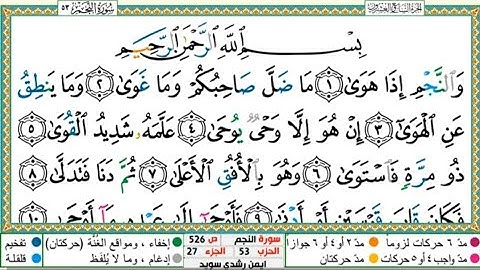 سورة النجم ٥٣
بِسْمِ اللَّهِ الرَّحْمَٰنِ الرَّحِيمِ
وَالنَّجْمِ إِذَا هَوَىٰ ١ مَا ضَلَّ صَاحِبُكُمْ وَمَا غَوَىٰ ٢ وَمَا يَنطِقُ
عَنِ الْهَوَىٰ ٣ إِنْ هُوَ إِلَّا وَحْيٌ يُوحَىٰ ٤ عَلَّمَهُ شَدِيدُ الْقُوَىٰ ٥
ذُو مِرَّةٍ فَاسْتَوَىٰ ٦ وَهُوَ بِالْأُفُقِ الْأَعْلَىٰ ٧ ثُمَّ دَنَا فَتَدَلَّىٰ ٨
فَكَانَ قَابَ قَوْسَيْنِ أَوْ أَدْنَىٰ ٩ فَأَوْحَىٰ إِلَىٰ عَبْدِهِ مَا أَوْحَىٰ ١٠
مدّ ٦ حركات لزوماً مدّ ٢ أو ٤ أو ٦ جوازاً سورة النجم ص 526 إخفاء، ومواقع الغُنَّة (حركتان) تفخيم
مدّ واجب ٤ أو ٥ حركات مدّ حركتان الحزب 53 الجزء 27 إدغام، وما لا يُلفَظ قلقلة
ايمن رشدي سويد